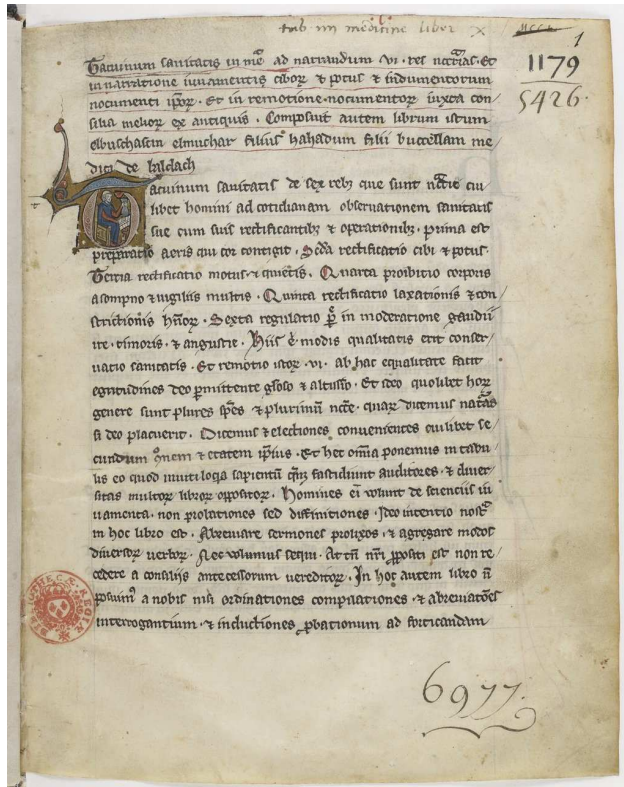 tab iiii medicine liber X
1
1179
5426.
Tacuinum sanitatis in mē ad narrandum .vi. res nccārias. Et
in narratione iuvamentis ciboꝝ ⁊ potus ⁊ indumentorum
nocumenti ipoꝝ. Et in remotione nocumentoꝝ iuxta con/
silia melioꝝ ex antiquis. Composuit autem librum istum
elbuschasin elmuchar filius hahadum filii buctellam me/
dici de baldach
Tacuinum sanitatis de sex rebꝫ que sunt nccārie cui/
libet homini ad cotidianam observationem sanitatis
sue cum suis rectificantibꝫ ⁊ operationibꝫ. prima est
preparatio aeris qui cor contigit. Scd̄a rectificatio cibi ⁊ potus.
Tertia rectificatio motus ⁊ quietis. Quarta proibitio corporis
a sompno ⁊ vigiliis multis. Quinta rectificatio laxationis ⁊ con/
strictionis hn̄oꝝ. Sexta regulatio ꝑ̄ in moderatione gaudii
ire. timoris. ⁊ angustie. Hiis ē modis qualitatis erit conser/
vatio sanitatis. Et remotio istoꝝ .vi. ab hac equalitate facit
egritudines deo ꝑmittente gl̄oso ⁊ altissīo. Et sub quolibet hoꝝ
genere sunt plures spēs ⁊ plurimū nccē. quaꝝ dicemus natās
si deo placuerit. Dicemus ⁊ electiones convenientes cuilibet se/
cundum ꝯ̄nem ⁊ etatem ip̄ius. Et hec om̄ia ponemus in tabu/
lis eo quod multiloqa sapientū qn̄ꝫ fastidiunt auditores. ⁊ diver/
sitas multoꝝ libroꝝ oppositoꝝ. Homines ei volunt de scienciis iu/
vamenta. non probationes sed diffinitiones. Ideo intentio nost̄
in hoc libro est. Abreviare sermones prolixos. ⁊ agregare modos
diversoꝝ verboꝝ. Nec volumus sequi. At tn̄ nr̄i ꝓpositi est non re/
cedere a consiliis antecessorum vereditoꝝ. In hoc autem libro n̄
posuim⁹ a nobis nisi ordinationes compilationes. ⁊ abreviatōes
interrogantium. ⁊ inductiones ꝓbationum ad forticandam
6977